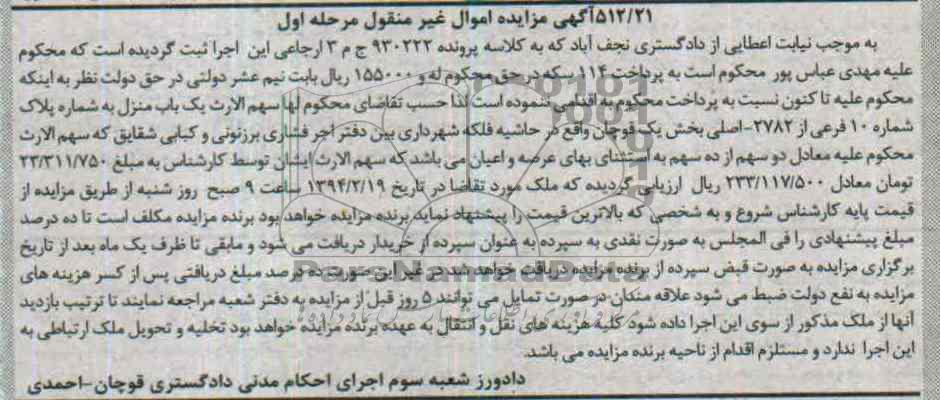 ۵۱۲/۲۱آگهی مزایده اموال غیر منقول مرحله اول
به موجب نیابت اعطایی از دادگستری نجف آباد که به کلاسه پرونده ۹۳۰۲۲۲ ج م ۳ ارجاعی این اجرا ثبت گردیده است که محکوم
علیه مهدی عباس پور محکوم است به پرداخت ۱۱۴ سکه در حق محکوم له و ۱۵۵۰۰۰ ریال بابت نیم عشر دولتی در حق دولت نظر به اینکه
محکوم علیه تا کنون نسبت به پرداخت محکوم به اقدامی ننموده است لذا حسب تقاضای محکوم لها سهم الارث یک باب منزل به شماره پلاک
شماره ۱۰ فرعی از ۲۷۸۲-اصلی بخش یک قوچان واقع در حاشیه فلکه شهرداری بین دفتر اجر فشاری برزنونی و کبابی شقایق که سهم الارث
محکوم علیه معادل دو سهم از ده سهم به استثنای بهای عرصه و اعیان می باشد که سهم الارث ایشان توسط کارشناس به مبلغ ۲۳/۳۱۱/۷۵۰
تومان معادل ۲۳۳/۱۱۷/۵۰۰ ریال ارزیابی گردیده که ملک مورد تقاضا در تاریخ ۱۳۹۴/۳/۱۹ ساعت ۹ صبح روز شنبه از طریق مزایده از
قیمت پایه کارشناس شروع و به شخصی که بالاترین قیمت را پیشنهاد نماید برنده مزایده خواهد بود برنده مزایده مکلف است تا ده درصد
مبلغ پیشنهادی را فی المجلس به صورت نقدی به سپرده به عنوان سپرده از خریدار دریافت می شود و مابقی تا ظرف یک ماه بعد از تاریخ
برگزاری مزایده به صورت قبض سپرده از برنده مزایده دریافت خواهد شد در غیر این صورت ده درصد مبلغ دریافتی پس از کسر هزینه های
مزایده به نفع دولت ضبط می شود علاقه مندان در صورت تمایل می توانند ۵ روز قبل از مزایده به دفتر شعبه مراجعه نمایند تا ترتیب بازدید
آنها از ملک مذکور از سوی این اجرا داده شود کلیه هزینه های نقل و انتقال به عهده برنده مزایده خواهد بود تخلیه و تحویل ملک ارتباطی به
این اجرا ندارد و مستلزم اقدام از ناحیه برنده مزایده می باشد.
دادورز شعبه سوم اجرای احکام مدنی دادگستری قوچان-احمدی
ParsNamadData